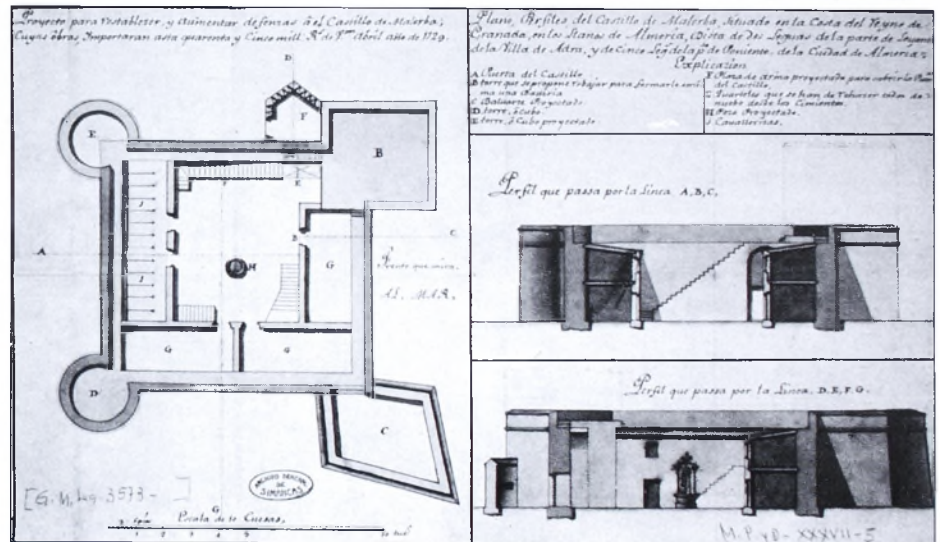 Proyecto para Restablezer, y Aumentar defensas à el Castillo de Malerba;
Cuyas obras Ymportaran asta quarenta y Cinco mill R.s de V.on Abril año de 1729.
D.
E
F
B
A
A
B
C.
I
I
H
G
Frente que mira,
AL MAR.
G
G
D
C
ARCHIVO GENERAL
DE
SIMANCAS
[G. M. leg. 3573 - ]
Escala de 10 Tuesas,
1 2 3
Plano, y Perfiles del Castillo de Malerba, situado en la Costa del Reyno de
Granada, en los llanos de Almeria, Dista de dos Leguas de la parte de
de la Villa de Adra, y de Cinco Leg.s de la p.te de Poniente, de la Ciudad de Almeria.
Explicazion
A Puerta del Castillo
B torre que se propone Rebajar para formarle
ma una Bateria.
C Baluarte Proyectado.
D torre, ò Cubo.
E torre, ò Cubo proyectado.
F Plaza de armas proyectada para cubrir la
del Castillo.
G Quarteles que se han de Rehazer todos de
nuebo desde los Cimientos.
H Pozo Proyectado.
I Cavallerizas.
Perfil que passa por la Linea A, B, C,
Perfil que passa por la Linea D. E, F. G.
M. P. y D - XXXVII - 5